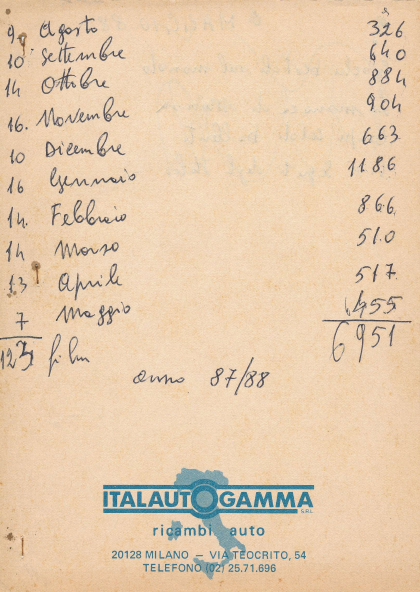 9 Agosto 326
10 Settembre 640
14 Ottobre 884
16. Novembre 904
10 Dicembre 663
16 Gennaio 1186
14. Febbraio 866
14 Marzo 510
13 Aprile 517
7 Maggio 455
123 film 6951
anno 87/88
ITALAUTOGAMMA SRL
ricambi auto
20128 MILANO – VIA TEOCRITO, 54
TELEFONO (02) 25.71.696